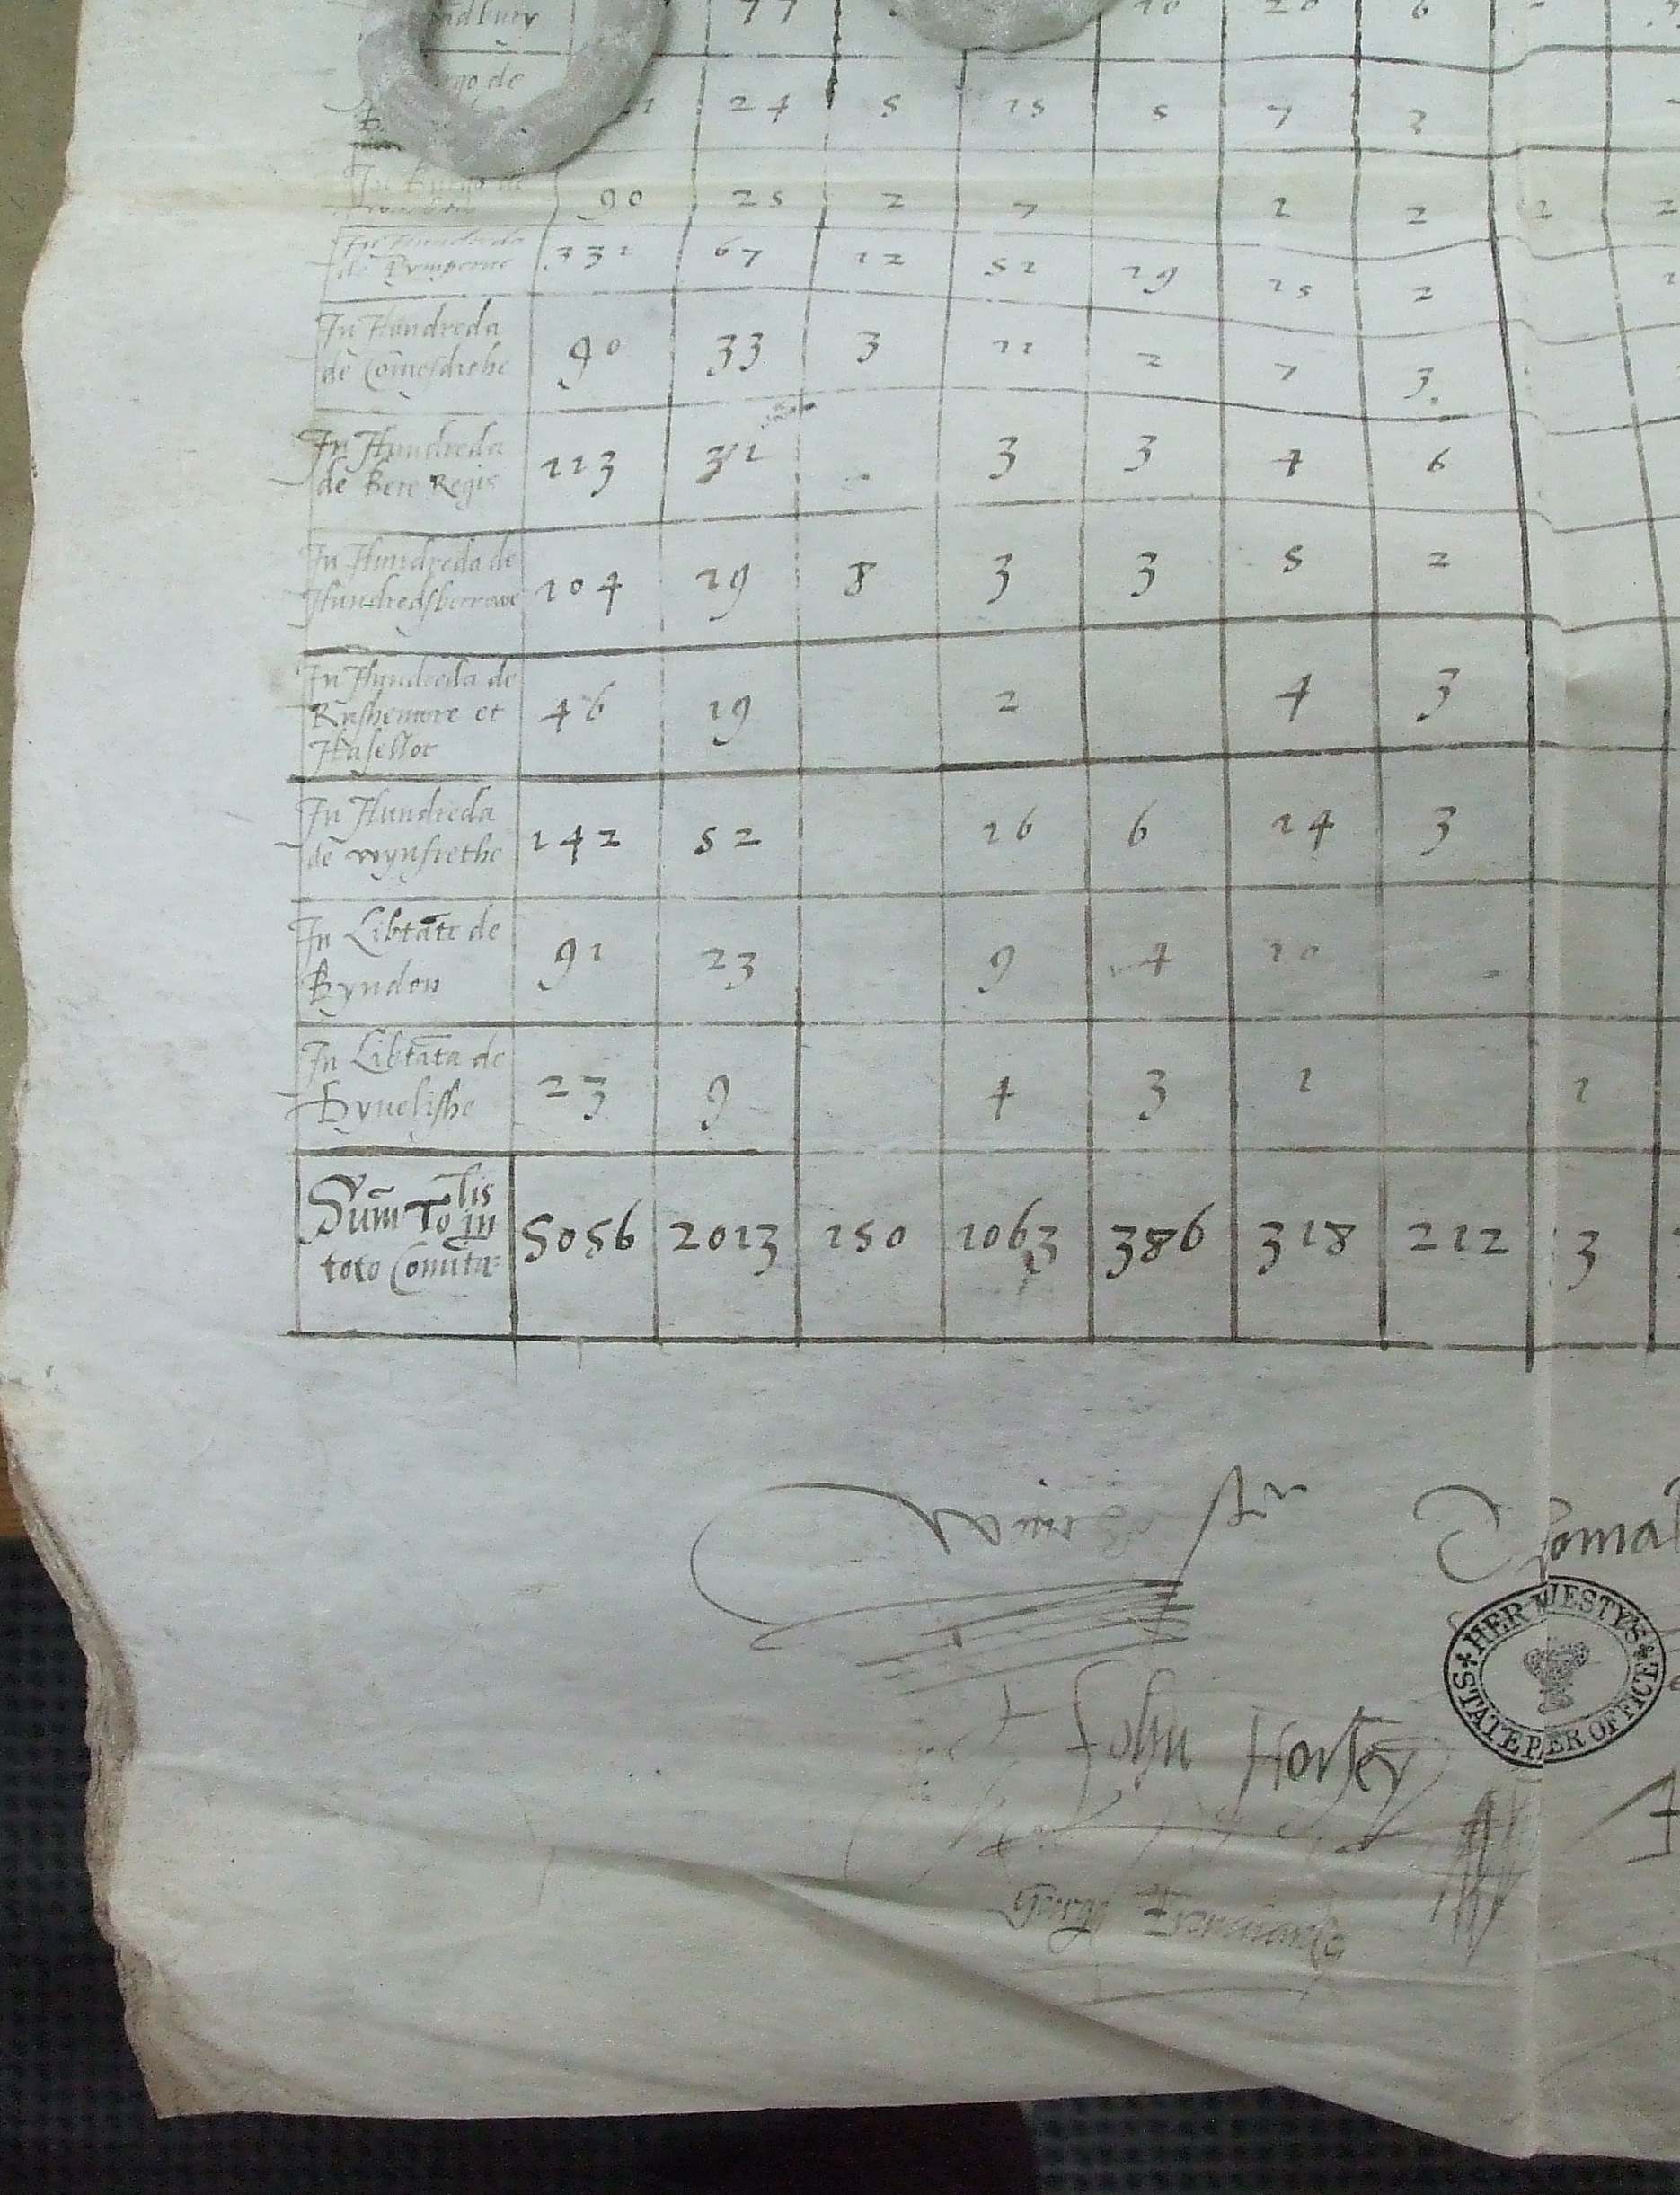 77 20 6
de 24 5 15 5 7 3
In Burgo de
90 25 2 7 2 2 2
In Hundreda
de Pymperne 331 67 12 52 19 15 2
In Hundreda
de Comesdiche 90 33 3 11 2 7 3
In Hundreda
de Bere Regis 113 31 3 3 4 6
In Hundreda de
Hundredsberrowe 104 19 8 3 3 5 2
In Hundreda de
Rushemore et
Hasellor 46 19 2 4 3
In Hundreda
de wynfrethe 142 52 16 6 14 3
In Libtate de
Byndon 91 23 9 4 10
In Libtata de
Dyuelishe 23 9 4 3 1 1
Sum Tolis in
toto Comita: 5056 2013 150 1063 386 318 212 3
Winchester
Thomas
HER MESTY'S STATE PER OFFICE
John Horsey
George